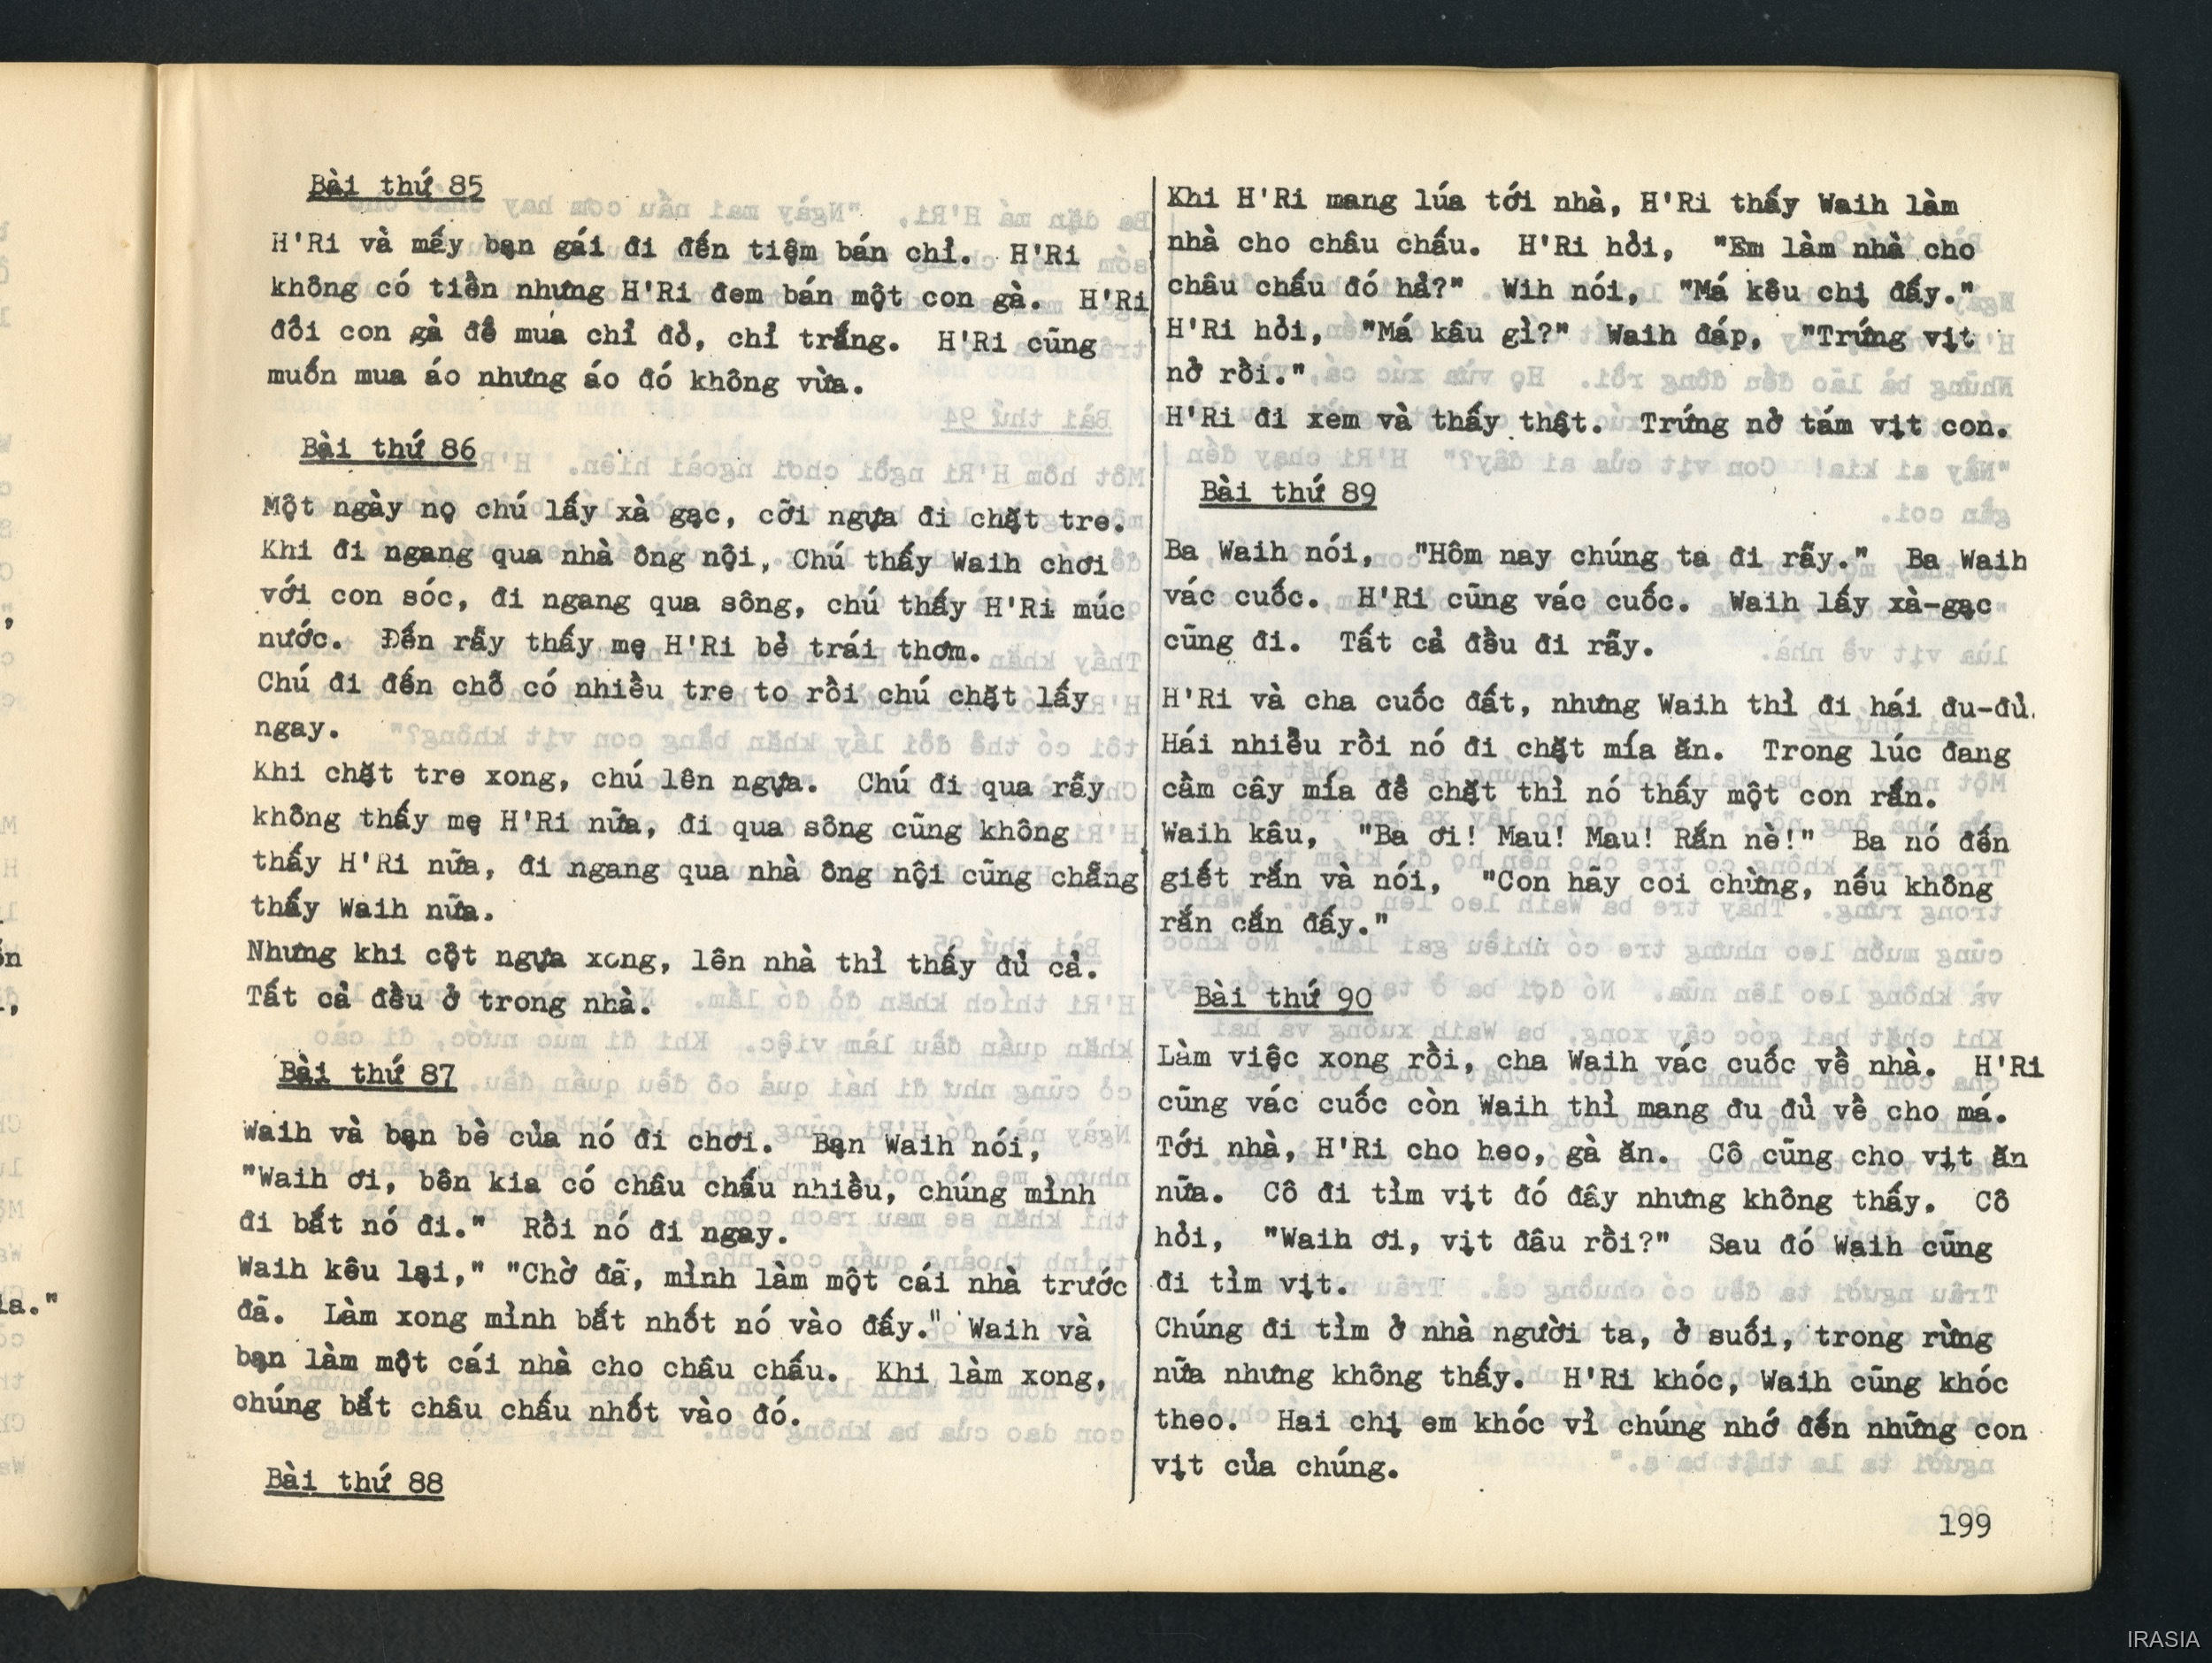 Bài thứ 85
H'Ri và mấy bạn gái đi đến tiệm bán chỉ. H'Ri
không có tiền nhưng H'Ri đem bán một con gà. H'Ri
đổi con gà để mua chỉ đỏ, chỉ trắng. H'Ri cũng
muốn mua áo nhưng áo đó không vừa.
Bài thứ 86
Một ngày nọ chú lấy xà gạc, cỡi ngựa đi chặt tre.
Khi đi ngang qua nhà ông nội, Chú thấy Waih chơi
với con sóc, đi ngang qua sông, chú thấy H'Ri múc
nước. Đến rẫy thấy mẹ H'Ri bẻ trái thơm.
Chú đi đến chỗ có nhiều tre to rồi chú chặt lấy
ngay.
Khi chặt tre xong, chú lên ngựa. Chú đi qua rẫy
không thấy mẹ H'Ri nữa, đi qua sông cũng không
thấy H'Ri nữa, đi ngang qua nhà ông nội cũng chẳng
thấy Waih nữa.
Nhưng khi cột ngựa xong, lên nhà thì thấy đủ cả.
Tất cả đều ở trong nhà.
Bài thứ 87
Waih và bạn bè của nó đi chơi. Bạn Waih nói,
"Waih ơi, bên kia có châu chấu nhiều, chúng mình
đi bắt nó đi." Rồi nó đi ngay.
Waih kêu lại," "Chờ đã, mình làm một cái nhà trước
đã. Làm xong mình bắt nhốt nó vào đấy." Waih và
bạn làm một cái nhà cho châu chấu. Khi làm xong,
chúng bắt châu chấu nhốt vào đó.
Bài thứ 88
Khi H'Ri mang lúa tới nhà, H'Ri thấy Waih làm
nhà cho châu chấu. H'Ri hỏi, "Em làm nhà cho
châu chấu đó hả?" Wih nói, "Má kêu chị đấy."
H'Ri hỏi, "Má kâu gì?" Waih đáp, "Trứng vịt
nở rồi."
H'Ri đi xem và thấy thật. Trứng nở tám vịt con.
Bài thứ 89
Ba Waih nói, "Hôm nay chúng ta đi rẫy." Ba Waih
vác cuốc. H'Ri cũng vác cuốc. Waih lấy xà-gạc
cũng đi. Tất cả đều đi rẫy.
H'Ri và cha cuốc đất, nhưng Waih thì đi hái đu-đủ.
Hái nhiều rồi nó đi chặt mía ăn. Trong lúc đang
cầm cây mía để chặt thì nó thấy một con rắn.
Waih kâu, "Ba ơi! Mau! Mau! Rắn nè!" Ba nó đến
giết rắn và nói, "Con hãy coi chừng, nếu không
rắn cắn đấy."
Bài thứ 90
Làm việc xong rồi, cha Waih vác cuốc về nhà. H'Ri
cũng vác cuốc còn Waih thì mang đu đủ về cho má.
Tới nhà, H'Ri cho heo, gà ăn. Cô cũng cho vịt ăn
nữa. Cô đi tìm vịt đó đây nhưng không thấy. Cô
hỏi, "Waih ơi, vịt đâu rồi?" Sau đó Waih cũng
đi tìm vịt.
Chúng đi tìm ở nhà người ta, ở suối, trong rừng
nữa nhưng không thấy. H'Ri khóc, Waih cũng khóc
theo. Hai chị em khóc vì chúng nhớ đến những con
vịt của chúng.
199
IRASIA